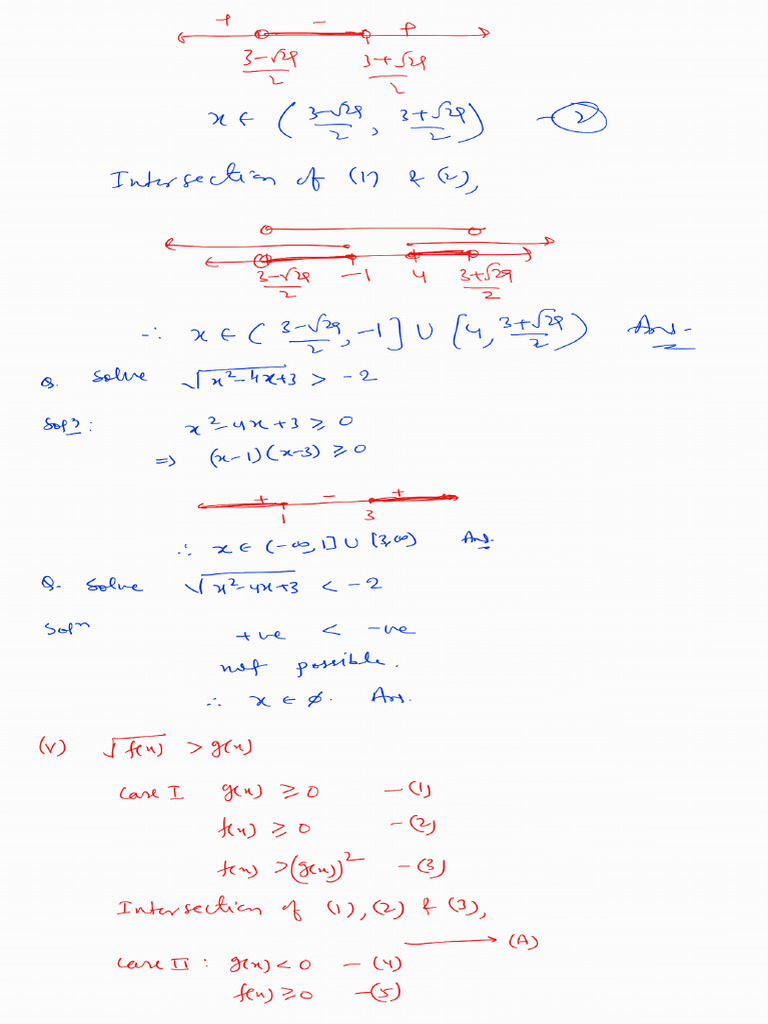 + - +
3-√29/2 3+√29/2
x ∈ ( 3-√29/2 , 3+√29/2 ) - (2)
Intersection of (1) & (2),
3-√29/2 -1 4 3+√29/2
∴ x ∈ ( 3-√29/2 , -1 ] ∪ [ 4, 3+√29/2 ) Ans.
Q. Solve √x²-4x+3 > -2
Solⁿ: x²-4x+3 ≥ 0
⇒ (x-1)(x-3) ≥ 0
+ - +
1 3
∴ x ∈ (-∞, 1] ∪ [3, ∞) Ans.
Q. Solve √x²-4x+3 < -2
Solⁿ +ve < -ve
not possible.
∴ x ∈ ϕ. Ans.
(v) √f(x) > g(x)
Case I g(x) ≥ 0 -(1)
f(x) ≥ 0 -(2)
f(x) > (g(x))² -(3)
Intersection of (1), (2) & (3),
→ (A)
Case II : g(x) < 0 -(4)
f(x) ≥ 0 -(5)